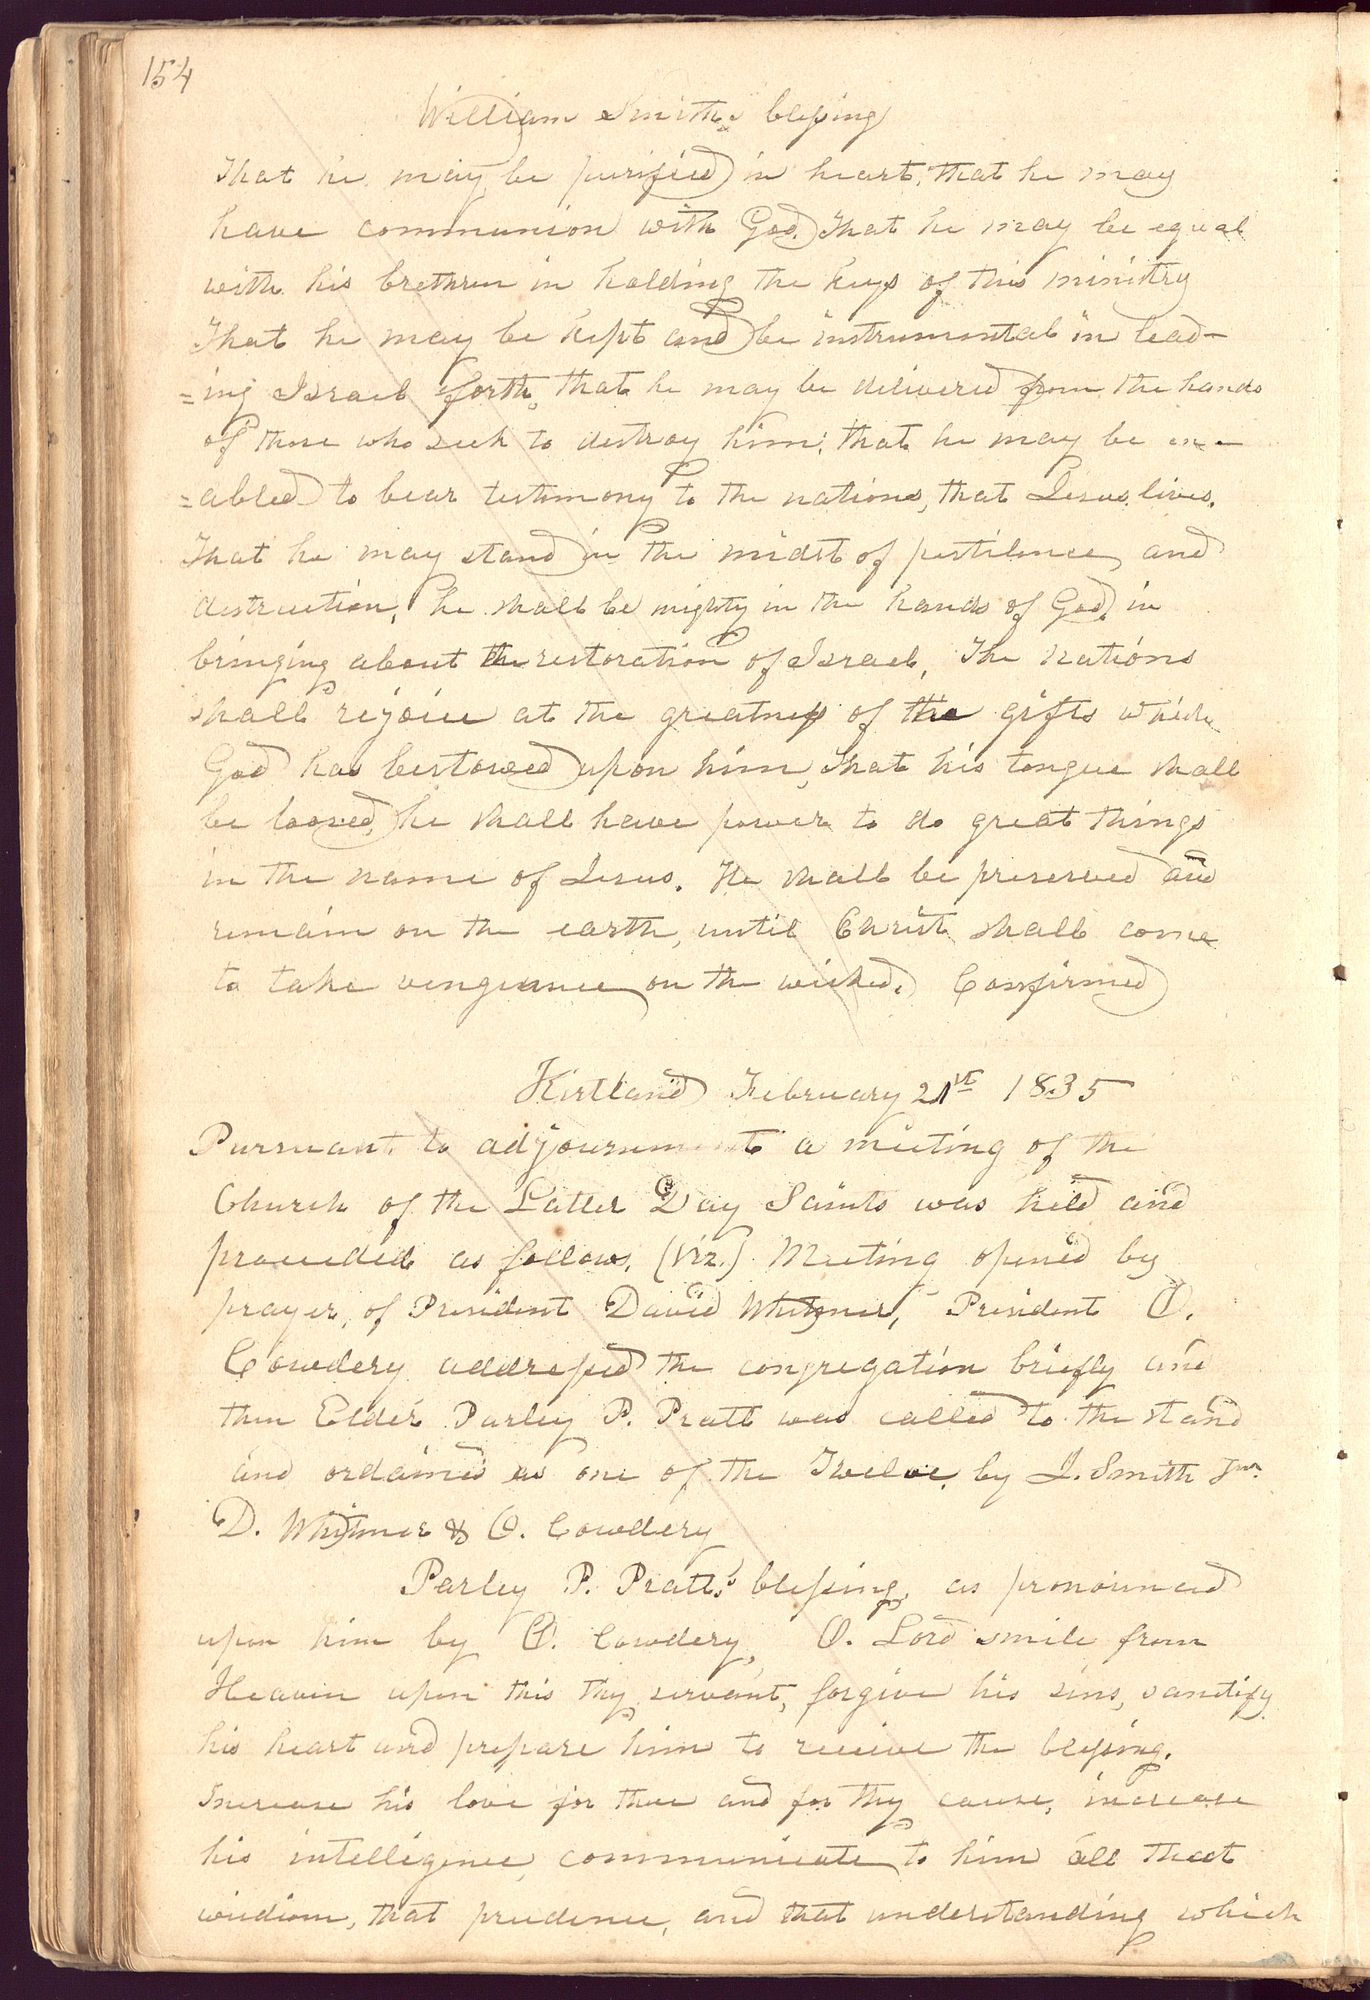 154
William Smith,s blessing
That he may be purified in heart, that he may
have communion with God. That he may be equal
with his brethren in holding the keys of this ministry
That he may be kept and be instrumental in lead-
=ing Israel forth, that he may be delivered from the hands
of those who seek to destroy him; that he may be en-
=abled to bear testimony to the nations, that Jesus lives.
That he may stand in the midst of pestilence and
destruction, he shall be mighty in the hands of God, in
bringing about the restoration of Israel, The nations
shall rejoice at the greatness of the gifts which
God has bestowed upon him, that his tongue shall
be loosed, he shall have power to do great things
in the name of Jesus. He shall be preserved and
remain on the earth, until Christ shall come
to take vengeance on the wicked. Confirmed
Kirtland February 21st 1835
Pursuant to adjournment a meeting of the
Church of the Latter Day Saints was held and
proceeded as follows, (viz.) Meeting opened by
prayer, of President David Whitmer, President O.
Cowdery addressed the congregation briefly and
then Elder Parley P. Pratt was called to the stand
and ordained as one of the Twelve, by J. Smith Jun.
D. Whitmer & O. Cowdery
Parley P. Pratt,s blessing, as pronounced
upon him by O. Cowdery, O. Lord smile from
Heaven upon this thy servant, forgive his sins, sanctify
his heart and prepare him to receive the blessing.
Increase his love for thee and for thy cause, increase
his intelligence, communicate to him all that
wisdom, that prudence, and that understanding which